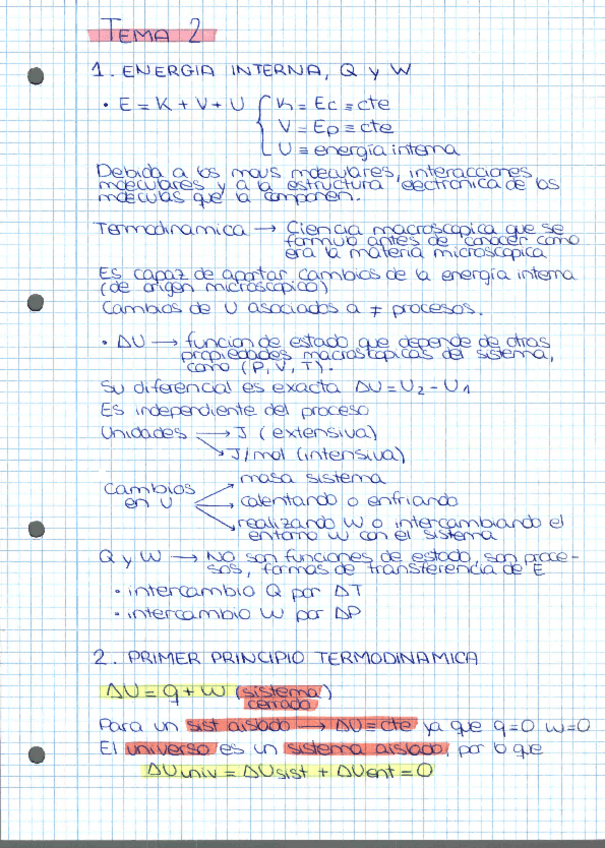 TEMA 2
1. ENERGIA INTERNA, Q y W
• E = K + V + U { K = Ec = cte
V = Ep = cte
U = energía interna
Debida a los movs moleculares, interacciones
moleculares y a la estructura electronica de las
moleculas que la componen.
Termodinamica → Ciencia macroscopica que se
formuló antes de conocer como
era la materia microscopica
Es capaz de aportar cambios de la energía interna
(de origen microscopico)
Cambios de U asociados a ≠ procesos.
• ΔU → funcion de estado que depende de otras
propiedades macroscopicas del sistema,
como (P, V, T).
Su diferencial es exacta ΔU = U2 - U1
Es independiente del proceso
Unidades → J (extensiva)
→ J/mol (intensiva)
Cambios en U → masa sistema
→ calentando o enfriando
→ realizando W o intercambiando el
entorno W con el sistema
Q y W → No son funciones de estado, son proce-
sos, formas de transferencia de E
• intercambio Q por ΔT
• intercambio W por ΔP
2. PRIMER PRINCIPIO TERMODINAMICA
ΔU = q + w (sistema
cerrado)
Para un sist aislado → ΔU = cte ya que q=0 w=0
El universo es un sistema aislado, por lo que
ΔUuniv = ΔUsist + ΔUent = 0